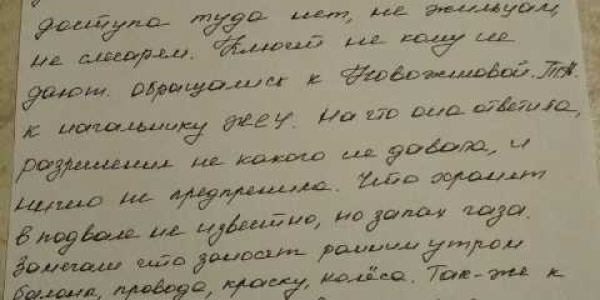 доступа туда нет, не жильцам,
не слесарем. Ключей не кому не
дают. обращались к Новожиловой.
к начальнику ЖЕУ. На что она ответила,
разришения не какого не давала, и
ничего не предпреняла. Что хранят
в подвале не известно, но запах газа.
Замечали что заносят ранним утром
балона, провода, краску, колёса. Так-же к